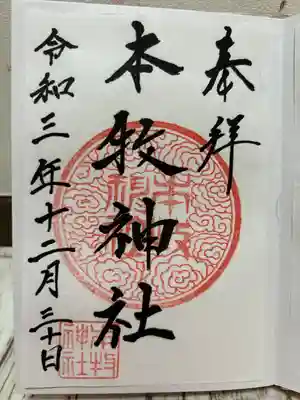 奉拝
本牧神社
令和三年十二月三十日
本牧神社
本牧神社